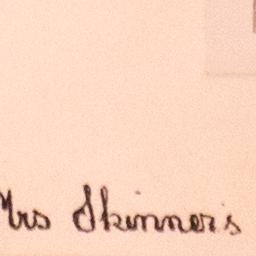 Mrs Skinner's